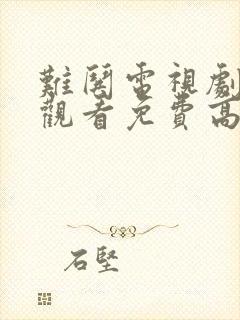 難鬩電視劇
觀看免費高
石堅